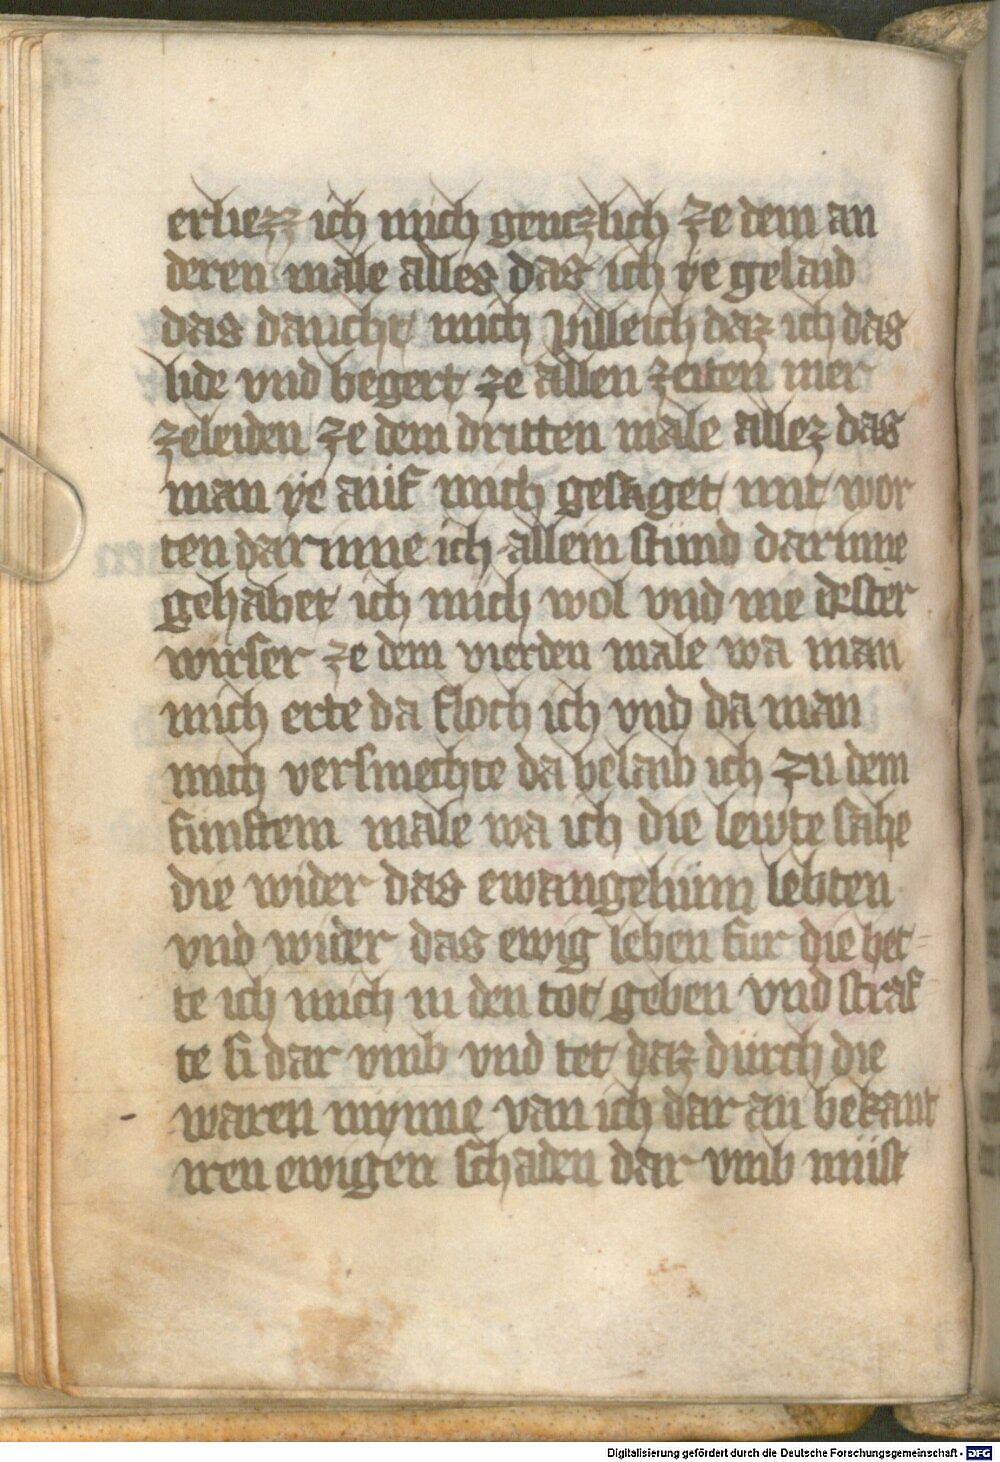 erliezz ich mich genczlich ze dem an
deren male alles das ich ye gelaid
das daucht mich pilleich daz ich das
lide vnd begert ze allen zeiten mer
zeleiden ze dem dritten male allez das
man ye auf mich gesaget mit wor
ten dar inne ich allein stund dar inne
gehabet ich mich wol vnd nie dester
wirser ze dem vierden male wa man
mich erte da floch ich vnd da man
mich versmechte da belaib ich zu dem
funftem male wa ich die lewte sahe
die wider das ewangelium lebten
vnd wider das ewig leben fur die het-
te ich mich in den tot geben vnd straf
te si dar vmb vnd tet daz durch die
waren mynne van ich dar an bekant
iren ewigen schaden dar vmb müst
Digitalisierung gefördert durch die Deutsche Forschungsgemeinschaft - DFG